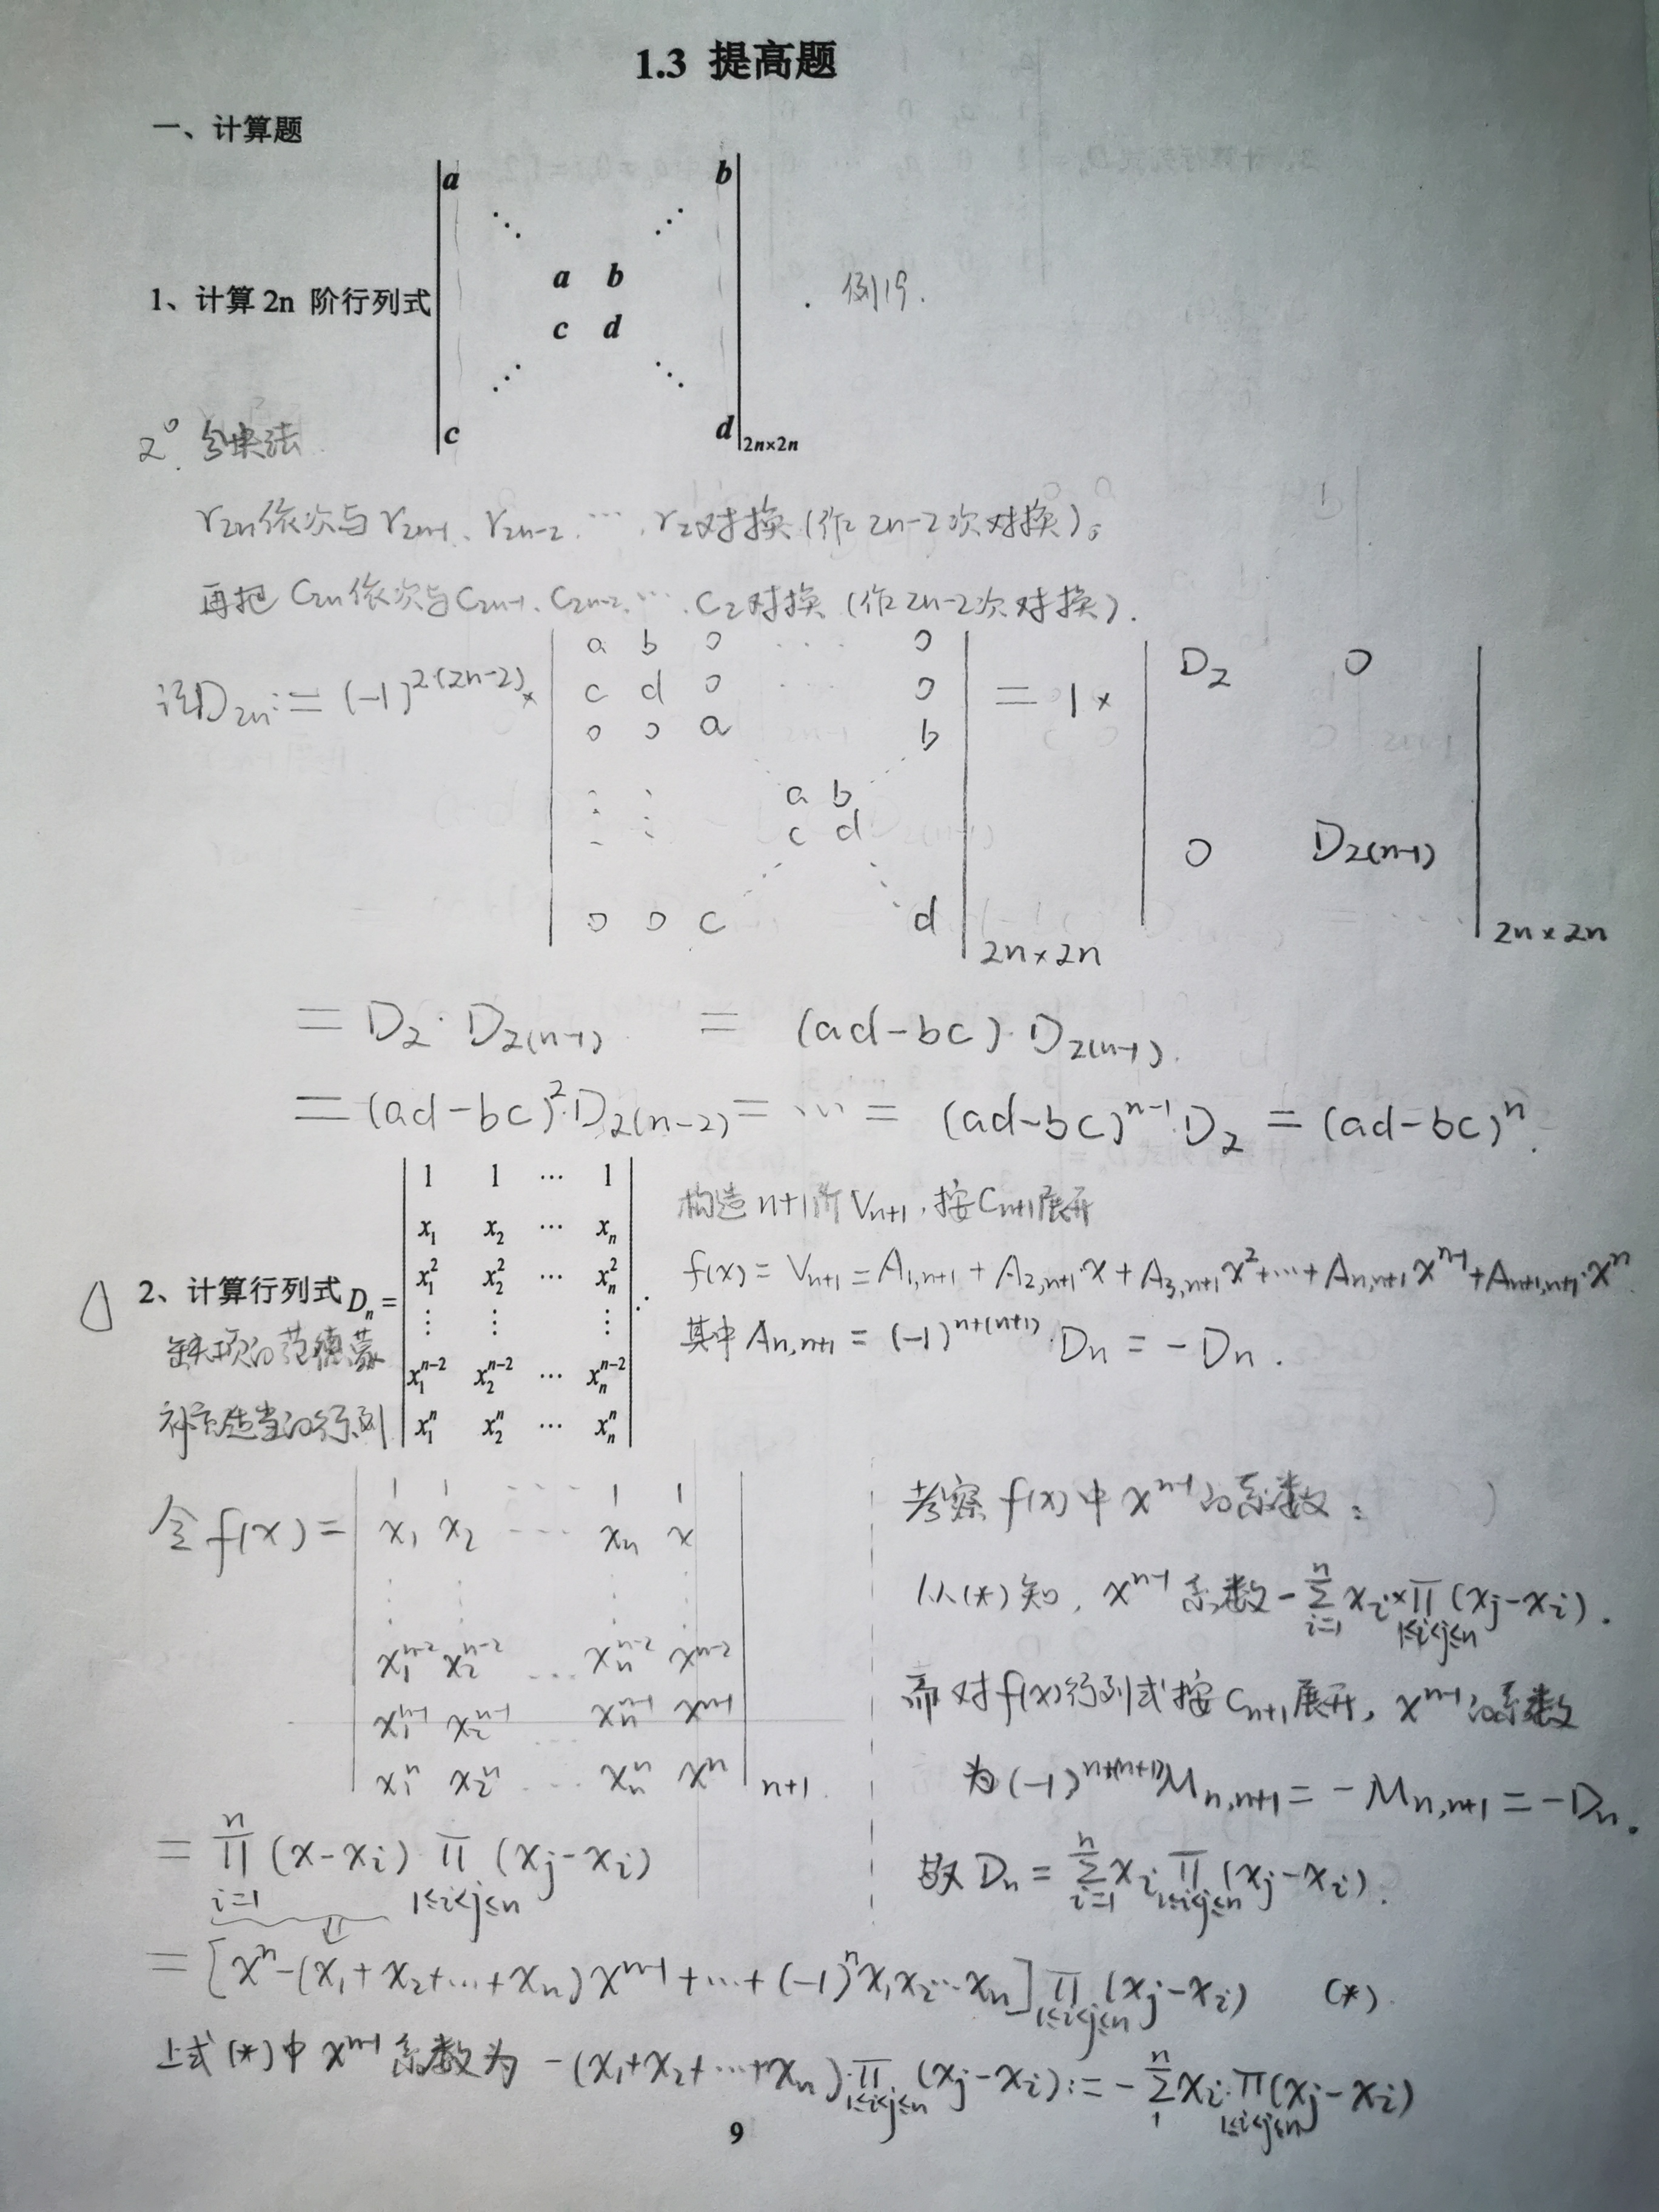 1.3 提高题
一、计算题
1、计算 2n 阶行列式
a b
⋱ ⋰
a b
c d
⋰ ⋱
c d 2n×2n
. 例19.
2° 分块法
r₂ₙ依次与r₂ₙ₋₁、r₂ₙ₋₂、…、r₂对换(作2n-2次对换)。
再把C₂ₙ依次与C₂ₙ₋₁、C₂ₙ₋₂、…、C₂对换(作2n-2次对换).
记D₂ₙ := (-1)^{2·(2n-2)} ×
a b 0 ⋯ 0
c d 0 ⋯ 0
0 0 a b
⋮ ⋮ a b
⋮ ⋮ c d
0 0 c d 2n×2n
= 1 ×
D₂ 0
0 D_{2(n-1)} 2n×2n
= D₂·D_{2(n-1)} = (ad-bc)·D_{2(n-1)}.
= (ad-bc)²·D_{2(n-2)} = ⋯ = (ad-bc)^{n-1}·D₂ = (ad-bc)ⁿ.
△ 2、计算行列式 Dₙ =
1 1 ⋯ 1
x₁ x₂ ⋯ xₙ
x₁² x₂² ⋯ xₙ²
⋮ ⋮ ⋮
x₁^{n-2} x₂^{n-2} ⋯ xₙ^{n-2}
x₁ⁿ x₂ⁿ ⋯ xₙⁿ
.
缺项的范德蒙
补充适当的行列
构造n+1阶Vₙ₊₁,按Cₙ₊₁展开
f(x) = Vₙ₊₁ = A_{1,n+1} + A_{2,n+1}·x + A_{3,n+1}x² + ⋯ + A_{n,n+1}x^{n-1} + A_{n+1,n+1}·xⁿ
其中 A_{n,n+1} = (-1)^{n+(n+1)}·Dₙ = -Dₙ.
令 f(x) =
1 1 ⋯ 1 1
x₁ x₂ ⋯ xₙ x
⋮ ⋮ ⋮ ⋮
x₁^{n-2} x₂^{n-2} ⋯ xₙ^{n-2} x^{n-2}
x₁^{n-1} x₂^{n-1} ⋯ xₙ^{n-1} x^{n-1}
x₁ⁿ x₂ⁿ ⋯ xₙⁿ xⁿ n+1
= ∏_{i=1}^{n} (x-xᵢ) ∏_{1≤i<j≤n} (xⱼ-xᵢ)
= [xⁿ-(x₁+x₂+⋯+xₙ)x^{n-1}+⋯+(-1)ⁿx₁x₂⋯xₙ] ∏_{1≤i<j≤n} (xⱼ-xᵢ) (*)
上式(*)中 x^{n-1} 系数为 -(x₁+x₂+⋯+xₙ)·∏_{1≤i<j≤n} (xⱼ-xᵢ) := -∑_{1}^{n} xᵢ·∏_{1≤i<j≤n} (xⱼ-xᵢ)
考察 f(x) 中 x^{n-1} 的系数:
从(*)知, x^{n-1} 系数 -∑_{i=1}^{n} xᵢ × ∏_{1≤i<j≤n} (xⱼ-xᵢ).
而对f(x)行列式按Cₙ₊₁展开, x^{n-1}的系数
为 (-1)^{n+(n+1)} M_{n,n+1} = -M_{n,n+1} = -Dₙ.
故 Dₙ = ∑_{i=1}^{n} xᵢ ∏_{1≤i<j≤n} (xⱼ-xᵢ).
9